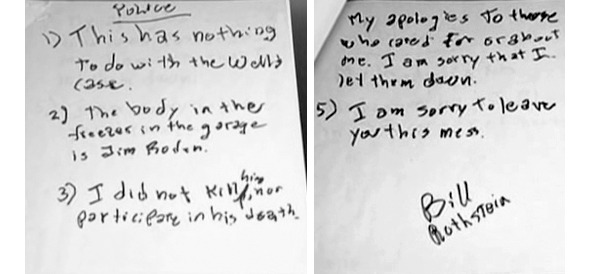 Police
1) This has nothing
to do with the Wells
case.
2) The body in the
freezer in the garage
is Jim Roden.
3) I did not kill him, nor
participate in his death.
My apologies to those
who cared for or about
me. I am sorry that I
let them down.
5) I am sorry to leave
you this mess.
Bill
Rothstein